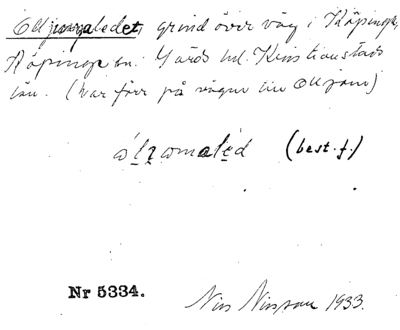 Olljungaledet, grind över väg i Köpinge,
Köpinge sn. Gärds hd. Kristianstads
län. (var förr på vägen till Olljam)
(best. f.)
Nr 5334.
Nils Nilsson 1933.